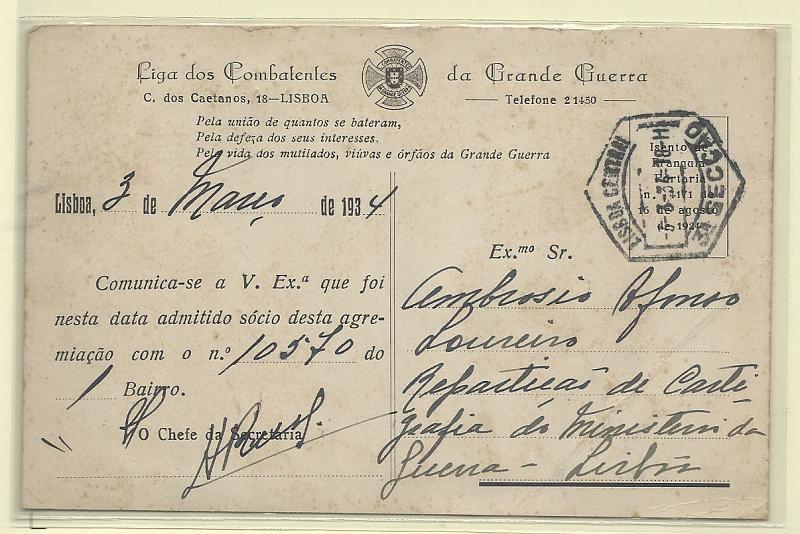 Liga dos Combatentes da Grande Guerra
COMBATENTES DA GRANDE GUERRA
C. dos Caetanos, 18—LISBOA
Telefone 21450
Pela união de quantos se bateram,
Pela defeza dos seus interesses.
Pela vida dos mutilados, viúvas e órfãos da Grande Guerra
Isento de
Franquia
Portaria
n.º 4171 de
16 de agosto
de 1924
LISBOA CENTRAL
3ª SECCÃO
Lisboa, 3 de Março de 1934
Comunica-se a V. Ex.ª que foi
nesta data admitido sócio desta agre-
miação com o n.º 10570 do
1 Bairro.
O Chefe da Secretaria
Ex.mo Sr.
Ambrosio Afonso
Loureiro
Repartição de Carto
grafia do Ministerio da
Guerra – Lisboa